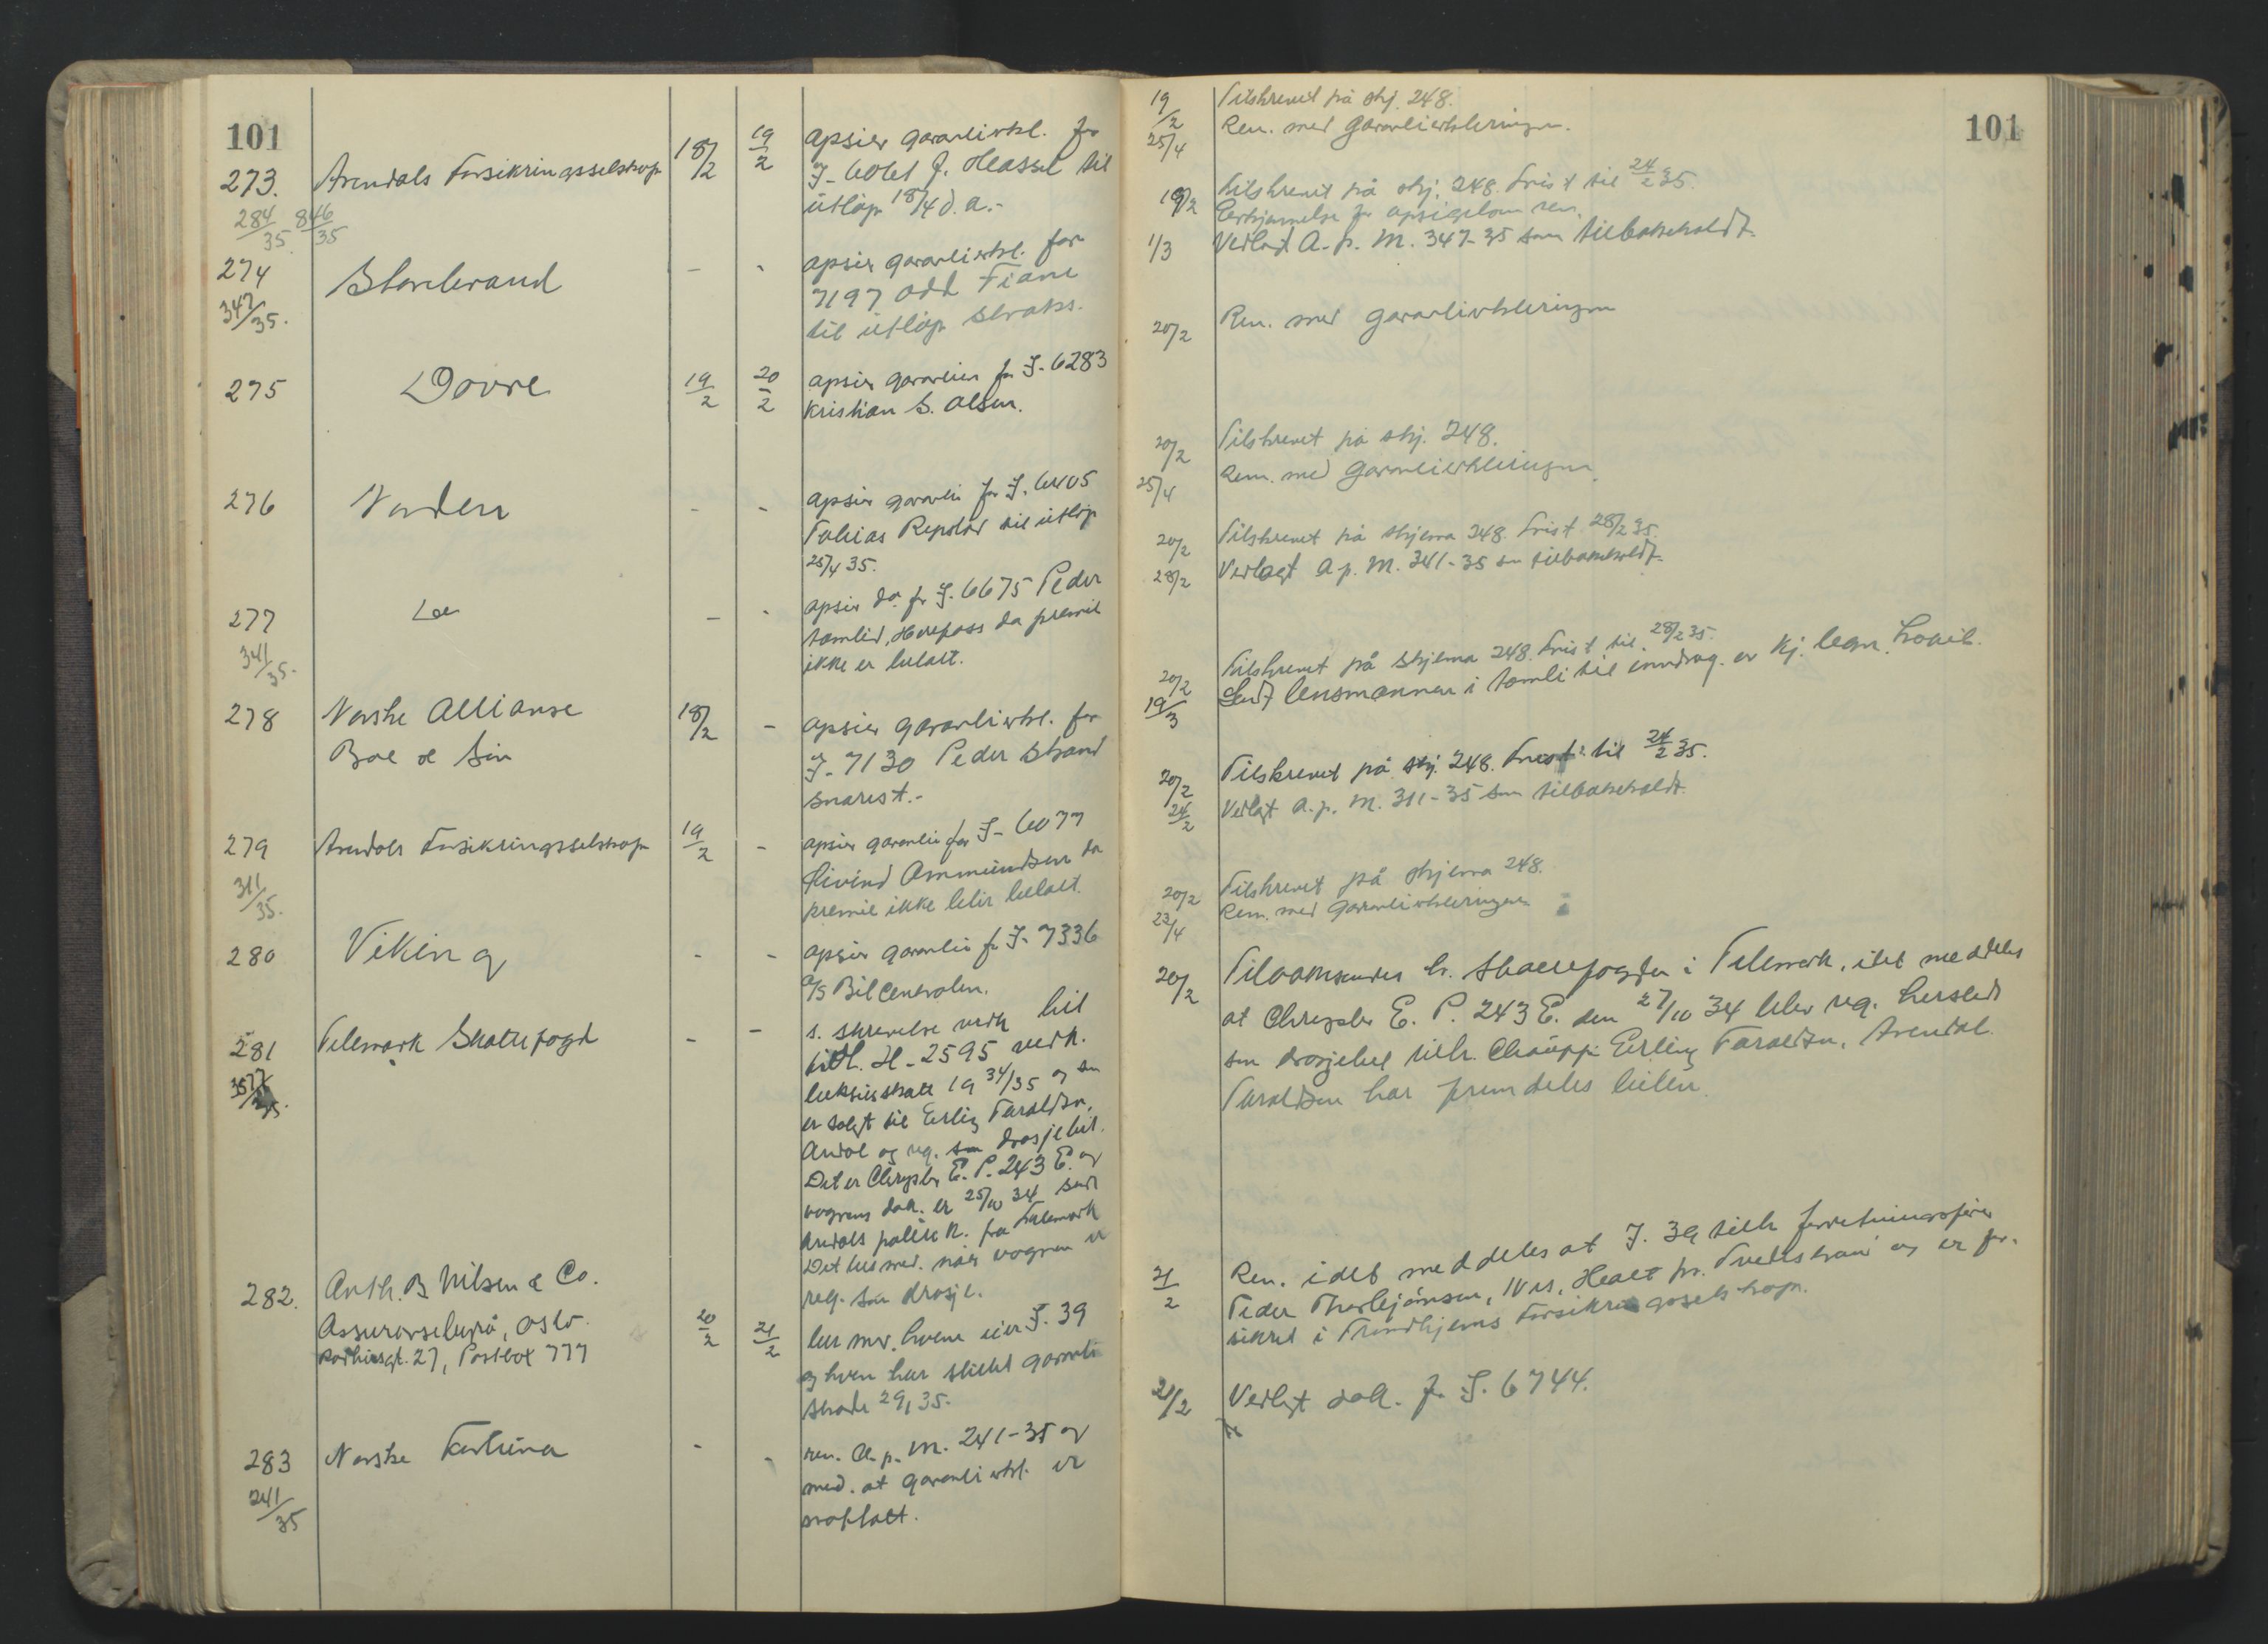 101
273.
284/35 846/35
Arendals Forsikringsselskap
18/2
19/2
apsier garantierkl. for
I- 6061 J. Hassel til
utløp 18/4 d.a.-
274
347/35.
Storebrand
-
-
apsier garantierkl. for
7197 Odd Fiane
til utløp straks.
275
Dovre
19/2
20/2
apsier garantien for I- 6283
Kristian S. Olsen.
276
Norden
-
-
apsier garanti for I. 6405
Tobias Repstad til utløp
25/4 35.
277
341/35.
-
-
apsier do. for I. 6675 Peder
Tomlid, Herefoss da premie
ikke er betalt.
278
Norske Allianse
Boe & Søn
18/2
-
apsier garantierkl. for
I- 7130 Peder Strand
snarest.-
279
311/35.
Arendals Forsikringsselskap
19/2
-
apsier garantie for I- 6077
Eivind Ommundsen da
premie ikke blir betalt.
280
Viking
-
-
apsier garantie for I- 7336
A/S Bil Centralen.
281
Telemark Skattefogd
-
-
s. skrivelse vedr. bil
kj. H-2595 vedr.
luksusskatt 1934/35 og som
er solgt til Erling Taraldsen,
Ardal og reg. som drosjebil.
Det er Chrysler E. P. 243 E. og
vognens dok. er 25/10 34 sendt
Arendals politik. fra Telemark
Det bes med. når vognen er
reg. som drosje.
282.
Anth. B. Nilsen & Co.
Assuransebyrå, Oslo.
Rådhusgt. 27, Postbox 777
20/2
21/2
bes med. hvem eier I. 39
og hvem har stillet garanti
skade 29/1 35.
283
241/35
Norske Fortuna
-
-
ren. A. p. M. 241-35 og
med. at garantierkl. er
mottatt.
101
19/2
Tilskrevet på skj. 248.
25/4
Ren. med garantierkleringen.
19/2
Tilskrevet på skj. 248. Frist til 24/2 35.
1/3
Verlagt A. p. M. 347-35 som tilbakeholdt.
20/2
Ren. med garantierkleringen
20/2
Tilskrevet på skj. 248.
25/4
Ren. med garantierkleringen
20/2
Tilskrevet på skjema 248. Frist 28/2 35.
28/2
Verlagt A. p. M. 341-35 som tilbakeholdt.
20/2
Tilskrevet på skjema 248. Frist til 28/2 35.
19/3
Sendt lensmannen i Tomli til inndrag. av kj. legn.
20/2
Tilskrevet på skj. 248. Frist til 24/2 35.
24/2
Verlagt A. p. M. 311-35 som tilbakeholdt.
20/2
Tilskrevet på skjema 248.
23/4
Ren. med garantierkleringen
20/2
Tilbakesendes hr. Skattefogden i Telemark, idet meddeles
at Chrysler E. P. 243 E. den 27/10 34 blev reg. hersteds
som drosjebil tilh. Chauffør Erling Taraldsen, Arendal.
Taraldsen har fremdeles bilen.
21/2
Ren. idet meddeles at I. 39 tilh. forretningsfører
Peder Thorbjørnsen, Nes, Holt pr. Tvedestrand og er for-
sikret i Trondhjems Forsikringsselskap.
21/2
Verlagt dok. for I. 6744.